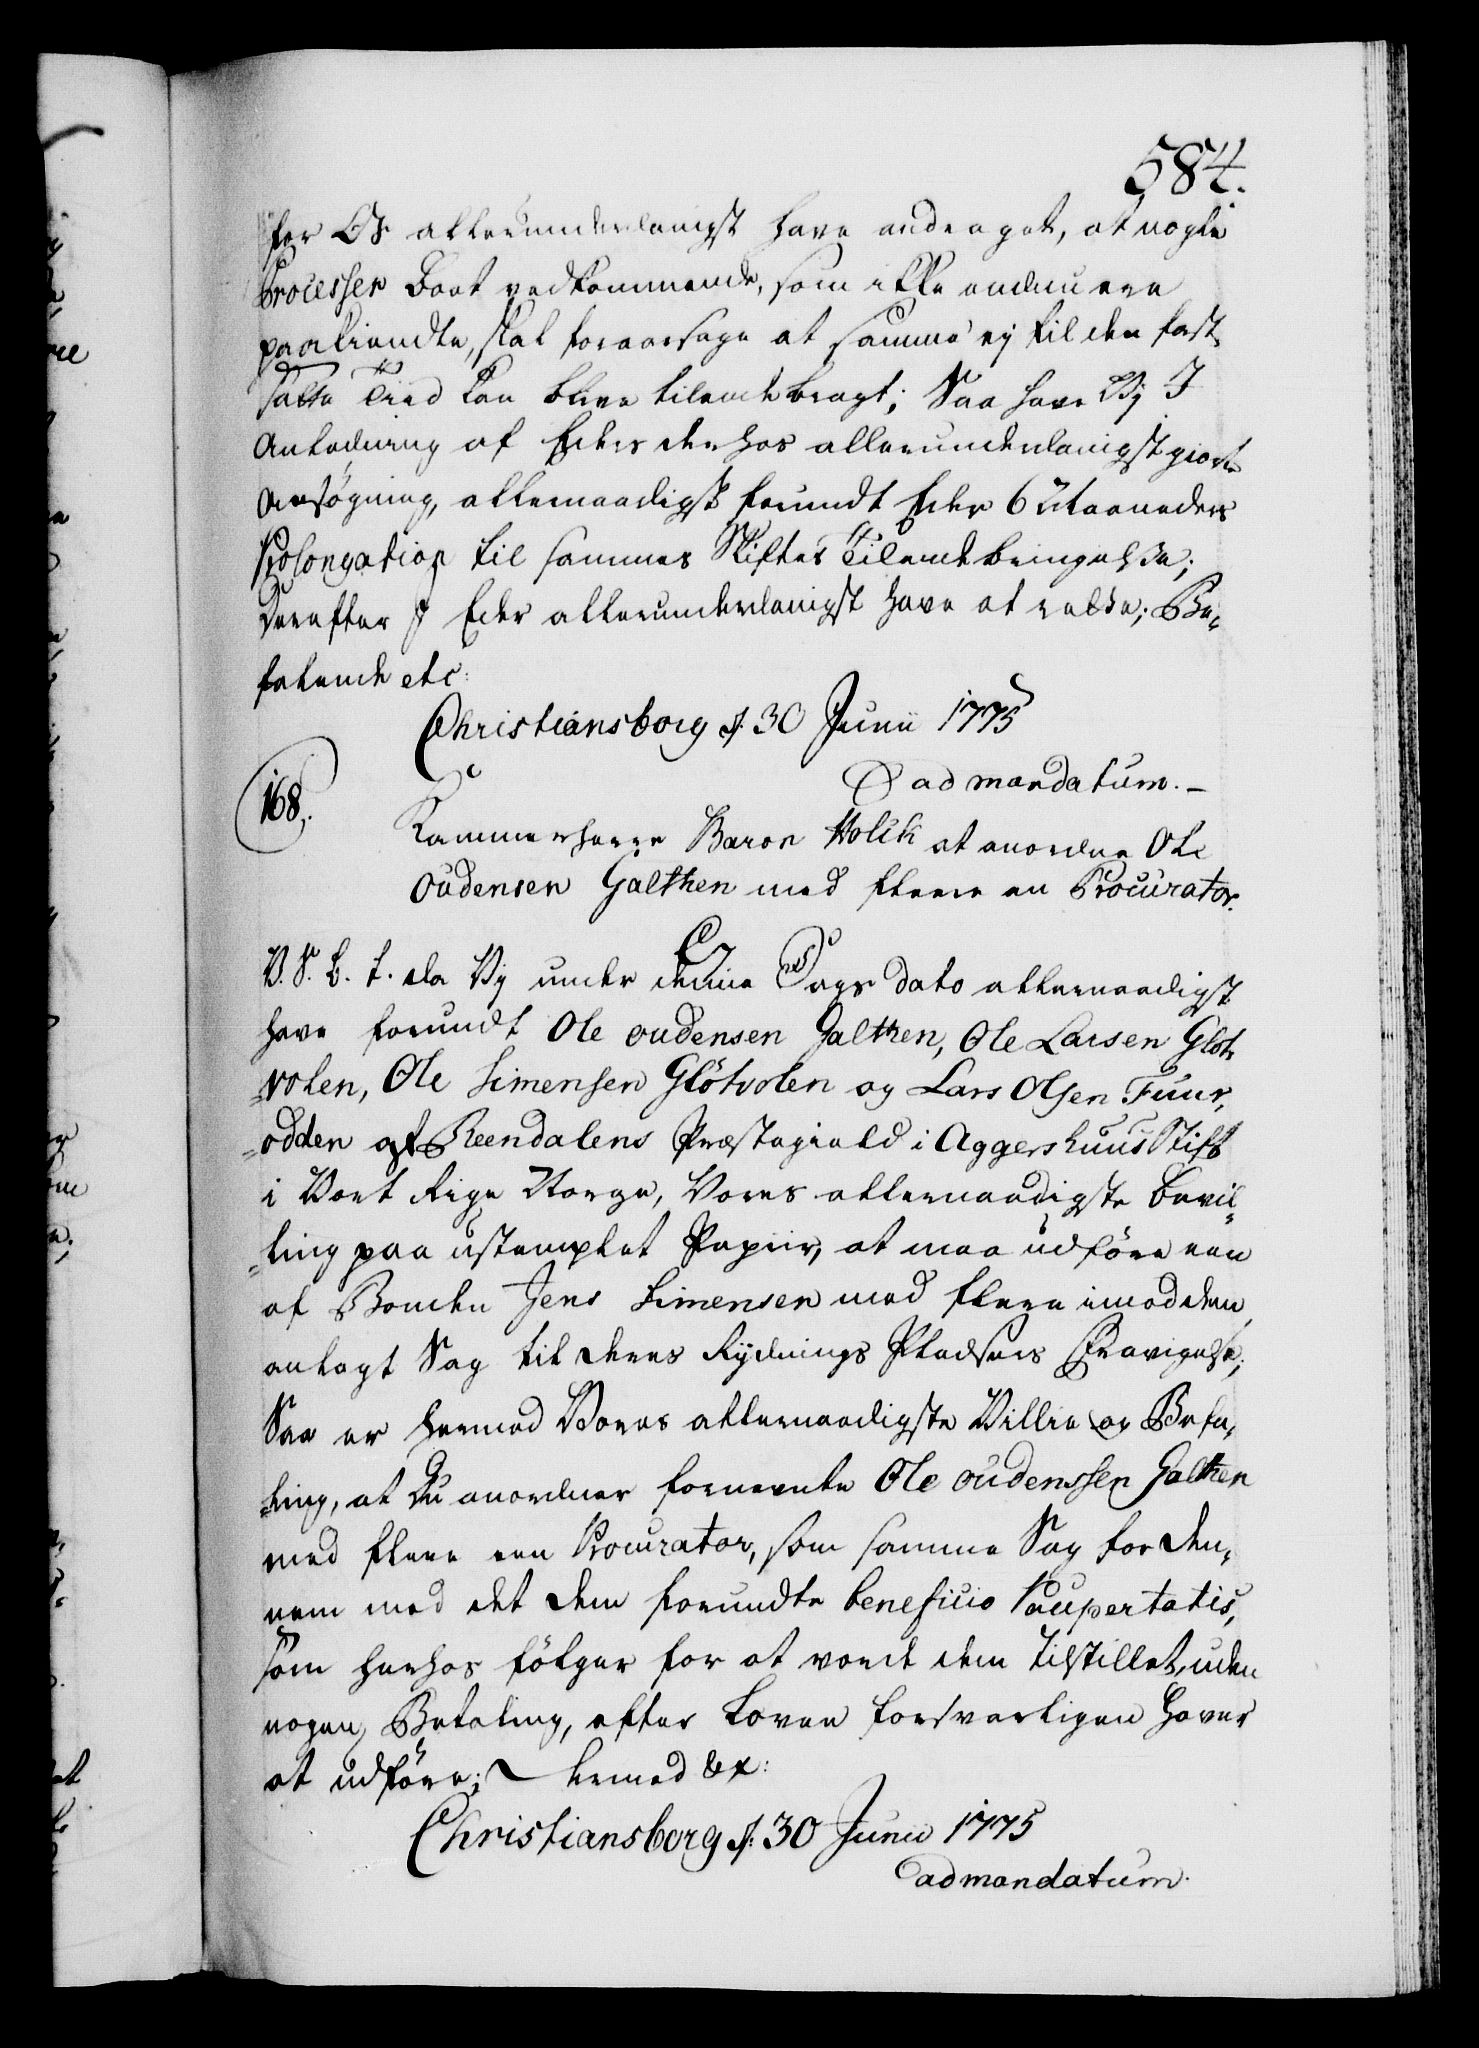 584.
for Os allerunderdanigst have andraget, at nogle
Processer Boet vedkommende, som ikke endnu ere
paakiendte, skal foraarsage at samme ej til den fast¬
satte Tiid kan blive tilendebragt; Saa have Vj I
Anledning af Eders derhos allerunderdanigst giorte
Ansøgning, allernaadigst forundt Eder 6 Maaneders
Prolongation til sammes Skiftes Tilendebringelse;
Derefter I Eder allerunderdanigst have at rette; Be¬
falende etc:
Christiansborg d: 30 Junii 1775
ad mandatum. –
168.
Kammerherre Baron Holck at anordne Ole
Oudensen Galthen med fleere en Procurator.
V. S. B. t. da Vj under denne Dags dato allernaadigst
have forundt Ole Oudensen Galthen, Ole Larsen Gløt¬
volen, Ole Simensen Gløtvolen og Lars Olsen Fuur¬
odden af Reendalens Præstegield i Aggershuus Stift
i Vort Rige Norge, Vores allernaadigste Bevil¬
ling paa ustemplet Papiir, at maa udføre een
af Bonden Jens Simensen med fleere imod dem
anlagt Sag til deres Rydnings Pladsers Fravigelse;
Saa er hermed Vores allernaadigste Villie og Befa¬
ling, at Du anordner fornevnte Ole Oudenssen Galthen
med fleere een Procurator, som samme Sag for den¬
nem med det dem forundte beneficio Paupertatis,
som herhos følger for at vorde dem tilstillet, uden
nogen Betaling, efter Loven forsvarligen haver
at udføre; – hermed &c:
Christiansborg d: 30 Junii 1775
ad mandatum.